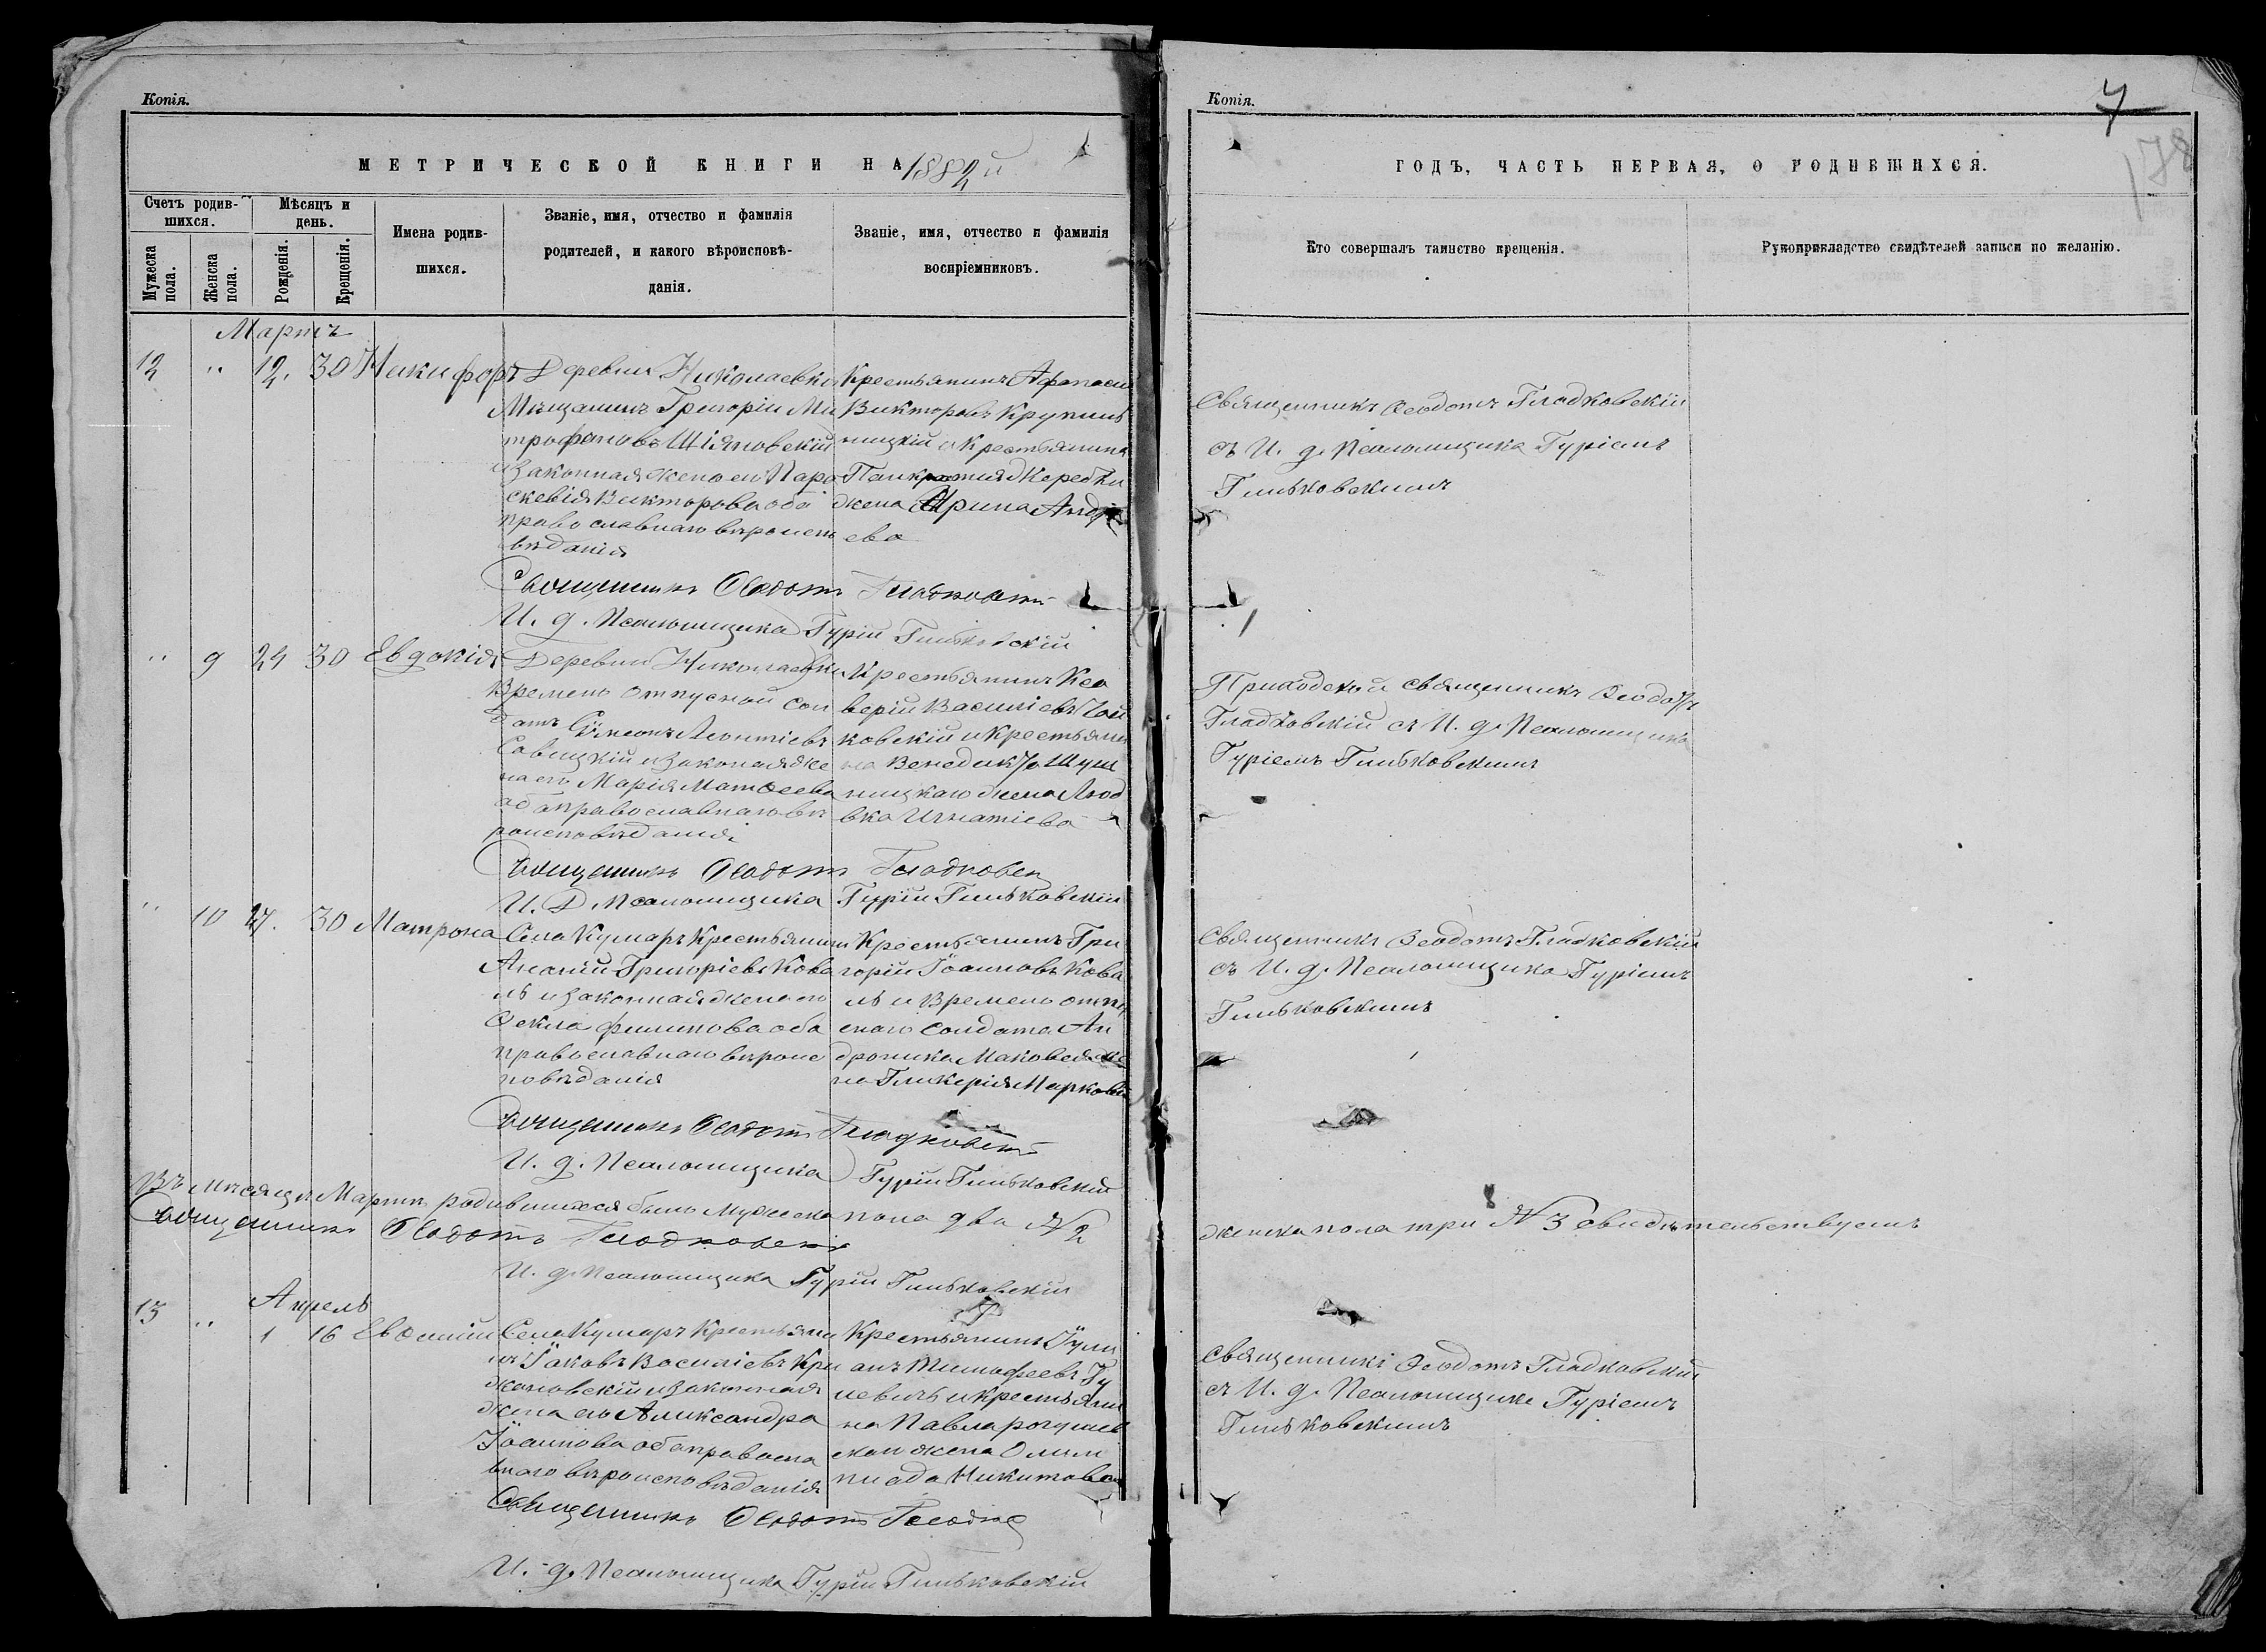 Копія.
МЕТРИЧЕСКОЙ КНИГИ НА 1882й
Счетъ родив-
шихся.
Мѣсяцъ и
день.
Мужеска
пола.
Женска
пола.
Рожденія.
Крещенія.
Имена родив-
шихся.
Званіе, имя, отчество и фамилія
родителей, и какого вѣроисповѣ-
данія.
Званіе, имя, отчество и фамилія
воспріемниковъ.
Мартъ
12 " 12. 30 Никифоръ
Деревни Николаевки
Мѣщанинъ Григорій Ми
трофановъ
и законная жена его Пара
скевія Викторова оба
православнаго вѣроиспо
вѣданія
Крестьянинъ Афанасій
Викторовъ
и крестьянина
Панкратія
жена Ирина
ева
Священникъ Ѳеодотъ Гладковскій
И. д. Псаломщика Гурій Гиньковскій
" 9 24 30 Евдокія
Деревни Николаевки
Времено отпускной сол
датъ Сѵмеонъ Леонтіевъ
Савицкій и законая же
на его Марія Матѳеева
оба православнаго вѣ
роисповѣданія
Крестьянинъ Кса
верій Василіевъ
ковскій и крестьяни
на Венедикта
ницкаго жена Люб
вка Игнатіева
Священникъ Ѳеодотъ Гладковск
И. Д. Псаломщика Гурій Гиньковскій
" 10 27. 30 Матрона
Села Кумаръ Крестьянинъ
Ананій Григоріевъ Кова
ль и законная жена его
Ѳекла Филипова оба
православнаго вѣроис
повѣданія
Крестьянинъ Гри
горій Іоанновъ Кова
ль и Времено отпу
скного солдата Ан
дроника Маковея же
на Гликерія Маркова
Священникъ Ѳеодотъ Гладковскій
И. д. Псаломщика Гурій Гиньковскій
Въ мѣсяцѣ Мартѣ родившихся было Мужеска пола два № 2
Священникъ Ѳеодотъ Гладковскій
И. д. Псаломщика Гурій Гиньковскій
Апрель
13 " 1 16 Евѳимій
Села Кумаръ Крестьяни
нъ Іаковъ Василіевъ Кри
жановскій и законная
жена его Александра
Іоаннова оба правосла
внаго вѣроисповѣданія
Крестьянинъ Іули
анъ Тимофеевъ Гу
и крестьяни
на Павла
жена Олим
пиада Никитова
Священникъ Ѳеодотъ
И. д. Псаломщика Гурій Гиньковскій
Копія.
7
178
ГОДЪ, ЧАСТЬ ПЕРВАЯ, О РОДИВШИХСЯ.
Кто совершалъ таинство крещенія.
Рукоприкладство свидѣтелей записи по желанію.
Священникъ Ѳеодотъ Гладковскій
съ И. д. Псаломщика Гуріемъ
Гиньковскимъ
Приходской священникъ Ѳеодотъ
Гладковскій съ И. д. Псаломщика
Гуріемъ Гиньковскимъ
Священникъ Ѳеодотъ Гладковскій
съ И. д. Псаломщика Гуріемъ
Гиньковскимъ
женска пола три № 3 свидѣтельствуемъ
Священникъ Ѳеодотъ Гладковскій
съ И. д. Псаломщика Гуріемъ
Гиньковскимъ